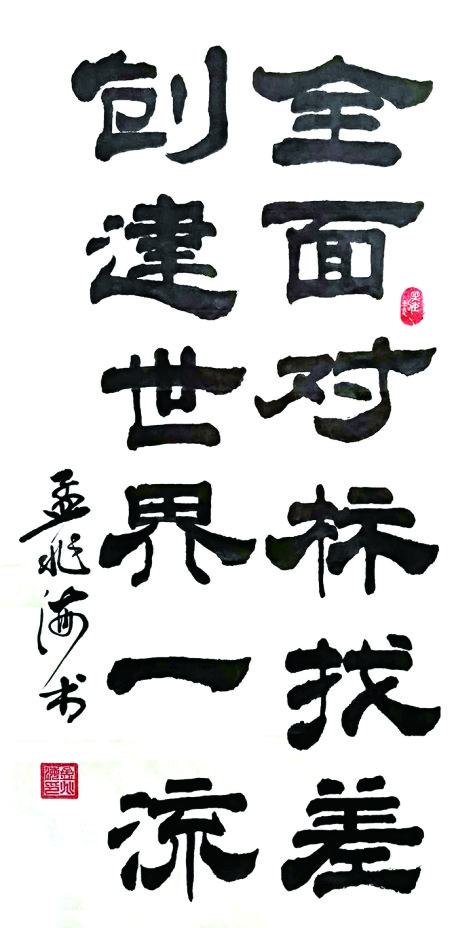 全面对标找差
创建世界一流
孟兆海书